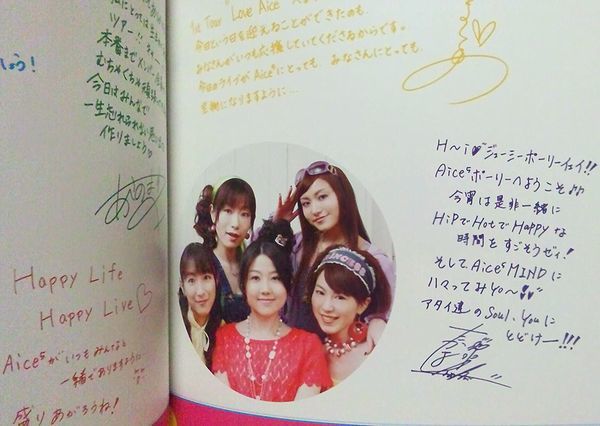 しょう！
ツアー!!
本番までメンバー
むちゃくちゃ頑張
今日はみんなで
一生忘れられない思い
作りましょう♡
Happy Life
Happy Live♡
Aice⁵がいつもみんなと
一緒でありますように
盛りあがろうね！
1st Tour "Love Aice
今日という日を迎えることができたのも、
みなさんがいつも応援していてくださるからです。
今日のライブがAice⁵にとっても、みなさんにとっても
宝物になりますように…
PRINCESS
H〜i♥ジューシーポーリーイェイ!!
Aice⁵ポーリーへようこそ♪♪
今宵は是非一緒に
HiPでHotでHappyな
時間をすごそうゼィ！
そしてAice⁵MiNDに
ハマってみYo〜!!
アタイ達のSoul、Youに
とどけー!!!